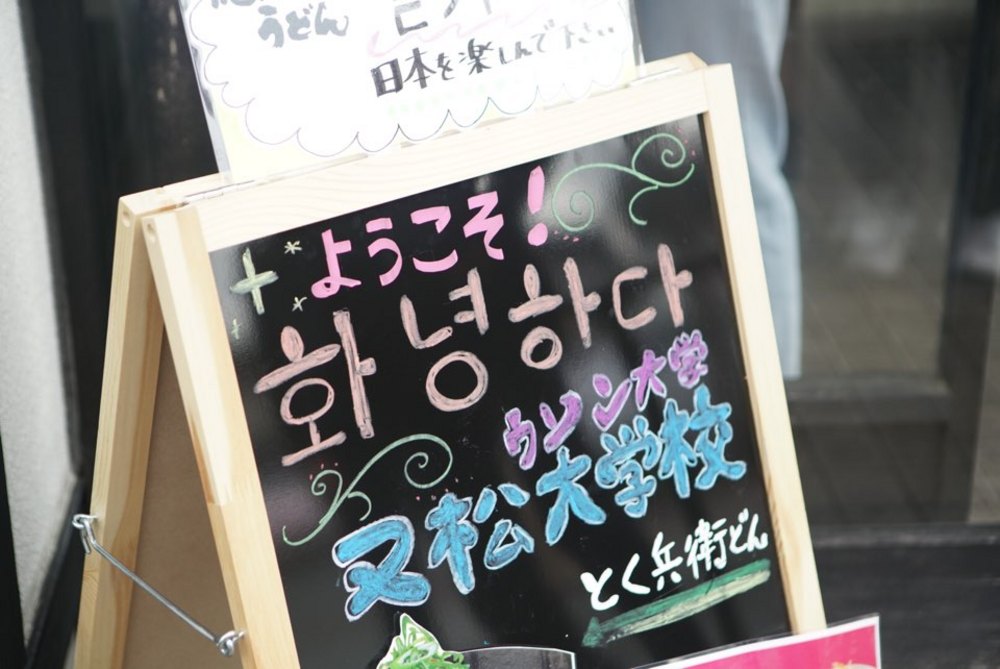 うどん
日本を楽しんで下さい
ようこそ!
화녕하다
ウソン大学
又松大学校
とく兵衛どん